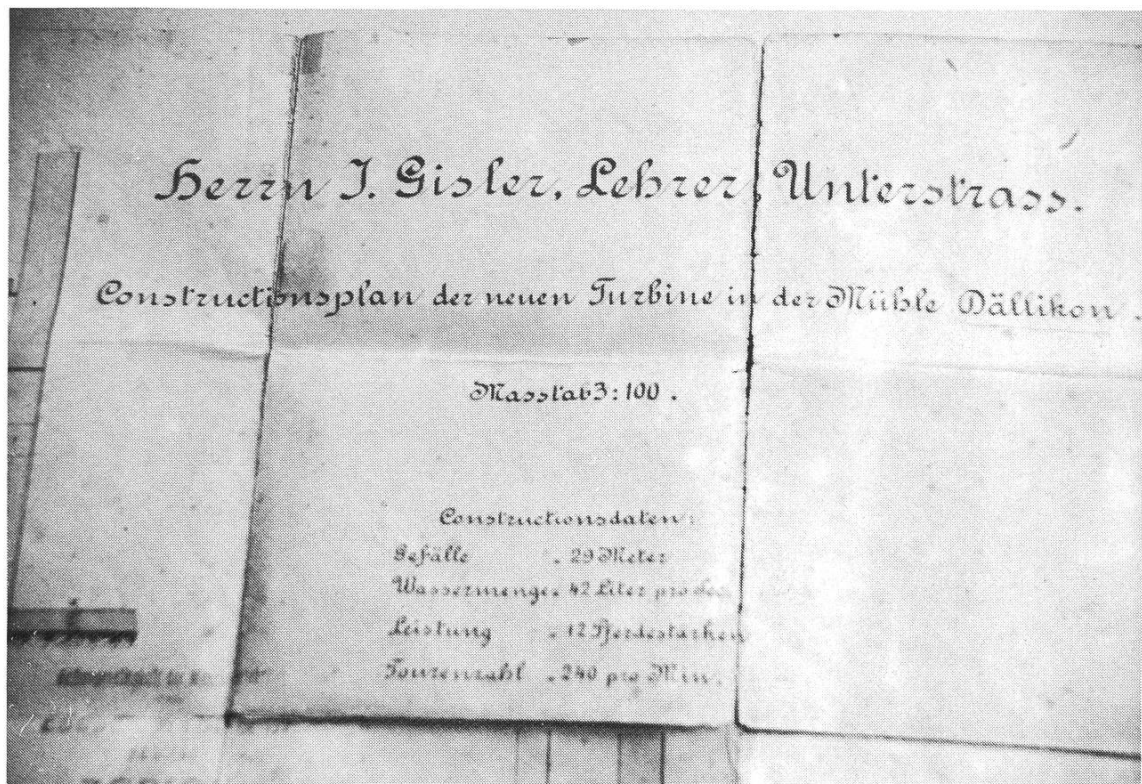 Herrn J. Gisler, Lehrer, Unterstrass.
Constructionsplan der neuen Turbine in der Mühle Dällikon.
Masstab 3:100.
Constructionsdaten:
Gefälle . 29 Meter
Wassermenge . 42 Liter pro Sec.
Leistung . 12 Pferdestärken
Tourenzahl . 240 pro Min.